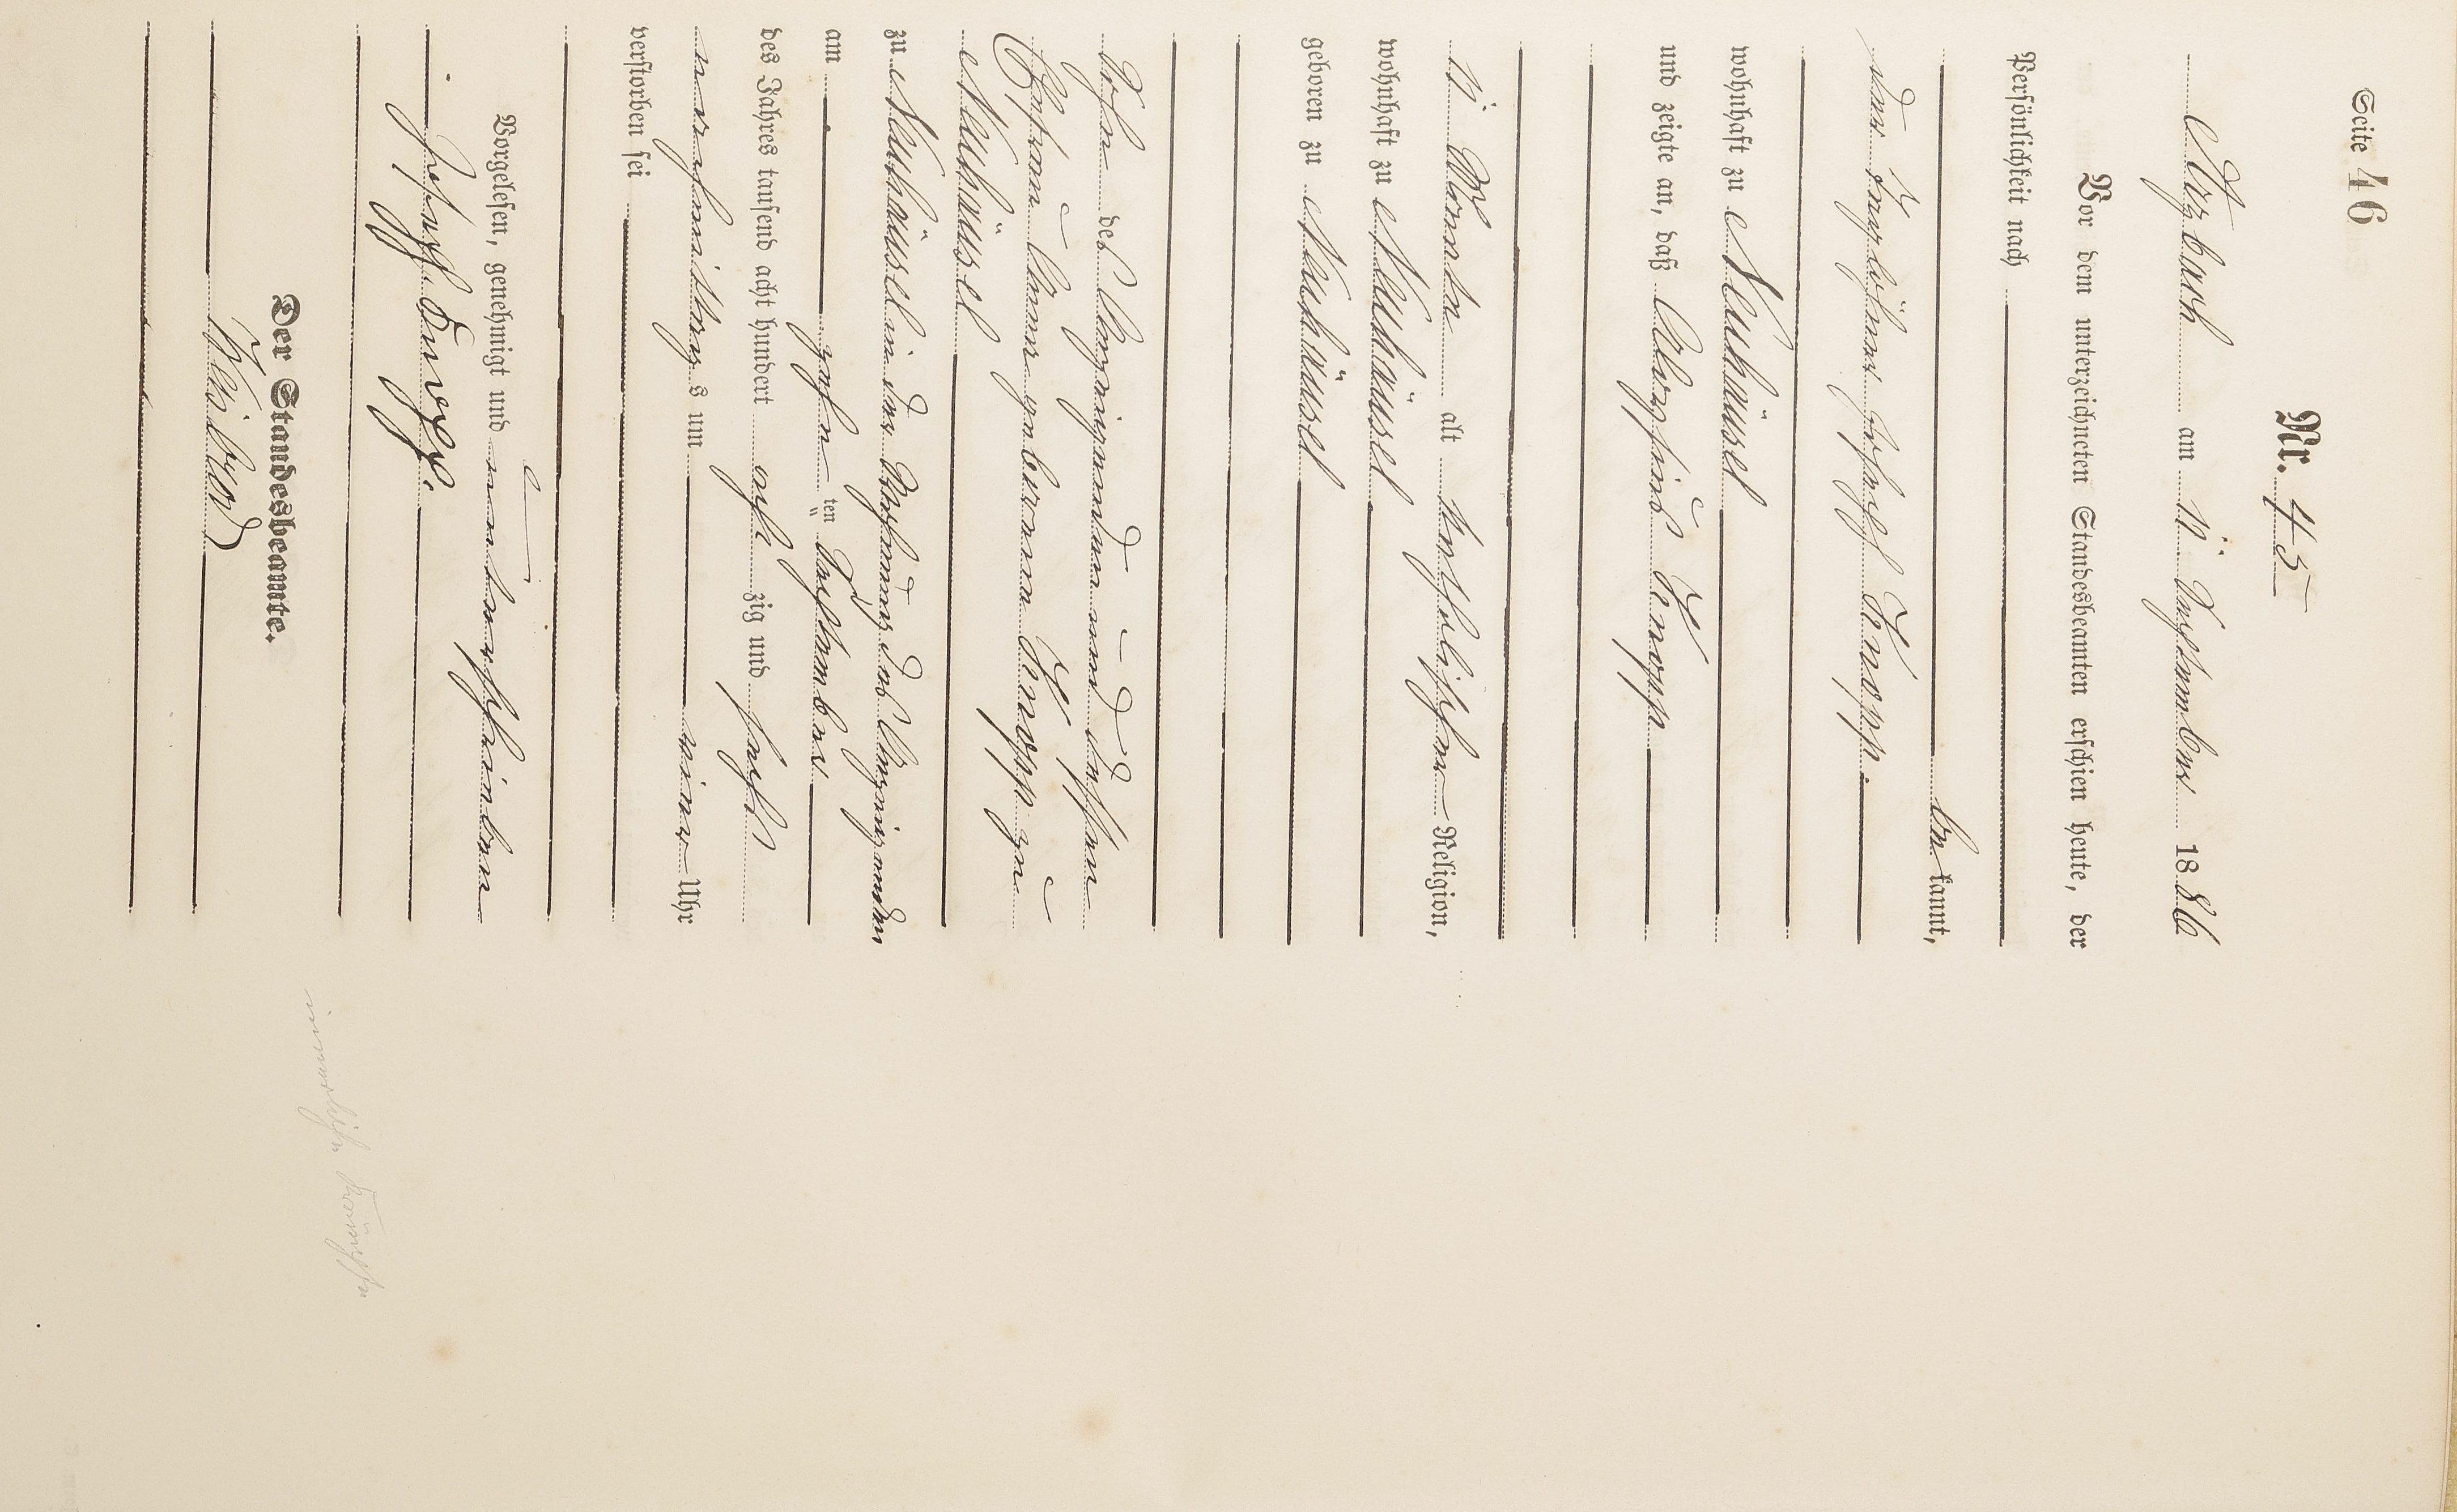 Seite 46
Nr. 45
Arzbach am 11. September 1886
Vor dem unterzeichneten Standesbeamten erschien heute, der
Persönlichkeit nach
be kannt,
der Tagelöhner Joseph Knopp.
wohnhaft zu Neuhäusel
und zeigte an, daß Aloysius Knopp
11 Monate alt katholischer Religion,
wohnhaft zu Neuhäusel
geboren zu Neuhäusel
Sohn des Anzeigenden und dessen
Ehefrau Anna geborene Knopp zu
Neuhäusel
zu Neuhäusel in der Wohnung des Anzeigenden
am zehn ten September
des Jahres tausend acht hundert acht zig und sechs
nachmittags um einer Uhr
verstorben sei
Vorgelesen, genehmigt und unterschrieben
Joseph Knopp.
Der Standesbeamte.
innerliche Krämpfe